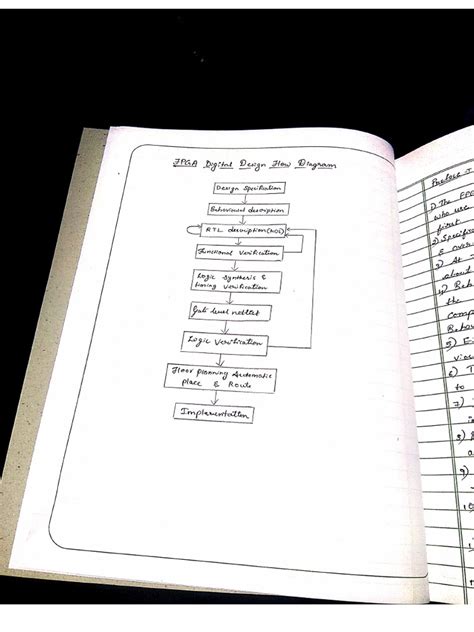 FPGA Digital Design Flow Diagram
Design Specification
Behavioural description
RTL description (HDL)
Functional Verification
Logic Synthesis &
timing Verification
Gate level netlist
Logic Verification
Floor planning Automatic
place & Route
Implementation
1) The
who use
first
2)
& over
3) At
about
4) Beh
the
Comp
Behavio
5)
view
6) T
to
7)
8)
a
9)
10